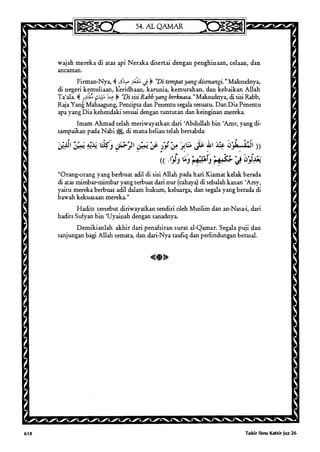 54. AL QAMAR
wajah mereka di atas api Neraka disertai dengan penghinaan, celaan, dan
ancaman.
Firman-Nya, ﴾ فِي مَقْعَدِ صِدْقٍ ﴿ "Di tempat yang disenangi." Maksudnya,
di negeri kemuliaan, keridhaan, karunia, kemurahan, dan kebaikan Allah
Ta'ala. ﴾ عِندَ مَلِيكٍ مُّقْتَدِرٍ ﴿ "Di sisi Rabb yang berkuasa." Maksudnya, di sisi Rabb,
Raja Yang Mahaagung, Pencipta dan Penentu segala sesuatu. Dan Dia Penentu
apa yang Dia kehendaki sesuai dengan tuntutan dan keinginan mereka.
Imam Ahmad telah meriwayatkan dari 'Abdullah bin 'Amr, yang di-
sampaikan pada Nabi ﷺ, di mana beliau telah bersabda:
(( الْمُقْسِطُونَ عِنْدَ اللهِ عَلَى مَنَابِرَ مِنْ نُوْرٍ عَنْ يَمِيْنِ الرَّحْمٰنِ وَكِلْتَا يَدَيْهِ يَمِيْنٌ الَّذِيْنَ
يَعْدِلُوْنَ فِي حُكْمِهِمْ وَأَهْلِيْهِمْ وَمَا وَلُوْا. ))
"Orang-orang yang berbuat adil di sisi Allah pada hari Kiamat kelak berada
di atas mimbar-mimbar yang terbuat dari nur (cahaya) di sebelah kanan 'Arsy,
yaitu mereka berbuat adil dalam hukum, keluarga, dan segala yang berada di
bawah kekuasaan mereka."
Hadits tersebut diriwayatkan sendiri oleh Muslim dan an-Nasa-i, dari
hadits Sufyan bin 'Uyainah dengan sanadnya.
Demikianlah akhir dari penafsiran surat al-Qamar. Segala puji dan
sanjungan bagi Allah semata, dan dari-Nya taufiq dan perlindungan berasal.
618
Tafsir Ibnu Katsir Juz 26